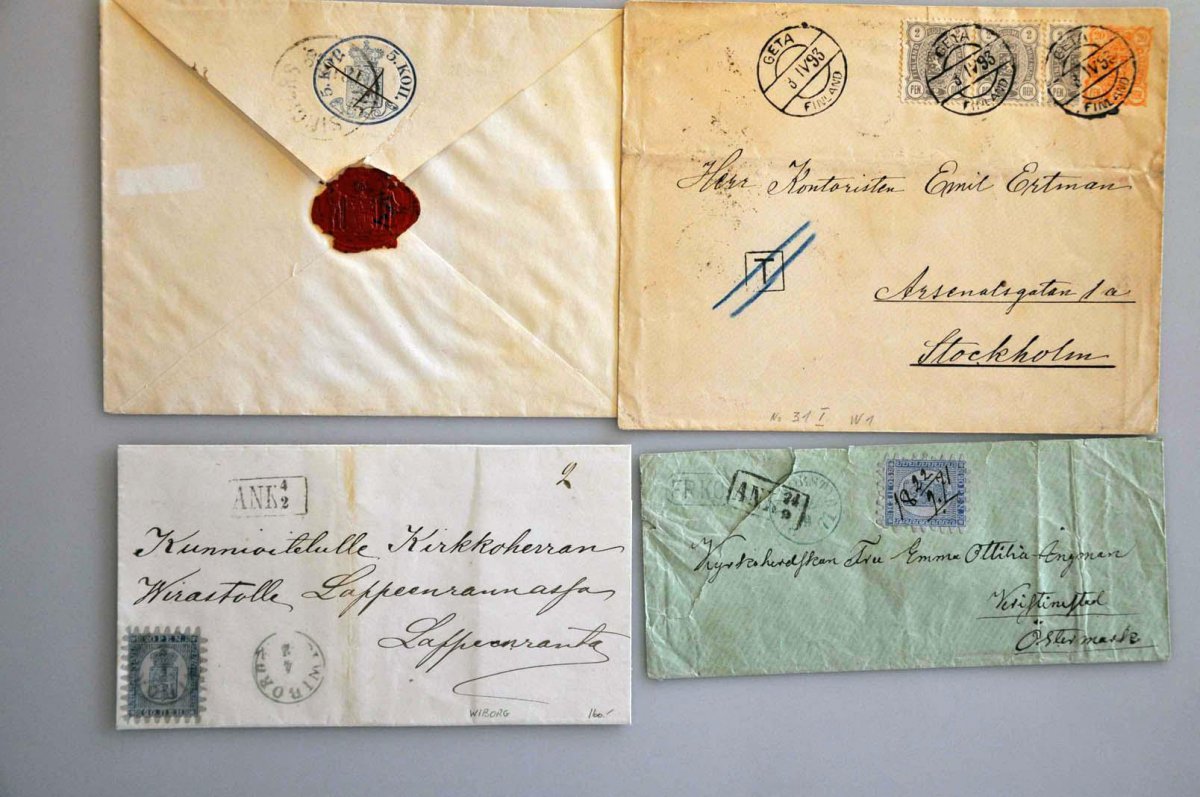 5. КОП. 5. КОП.
GETA
3 IV 93
FINLAND
2 2 20
PEN. PEN.
GETA
3 IV 93
FINLAND
GETA
3 IV 93
FINLAND
Herr Kontoristen Emil Ertman
T
Arsenalsgatan 1 a
Stockholm
No 31 I W1
ANK 4/2
2
Kunnioitetulle Kirkkoherran
Wirastolle Lappeenrannassa
Lappeenranta
20 PEN.
WIBORG
4
2
WIBORG
160.-
ANK 24/9
Kyrkoherdskan Fru Emma Ottilia Ingman
Kristinestad
Östermark